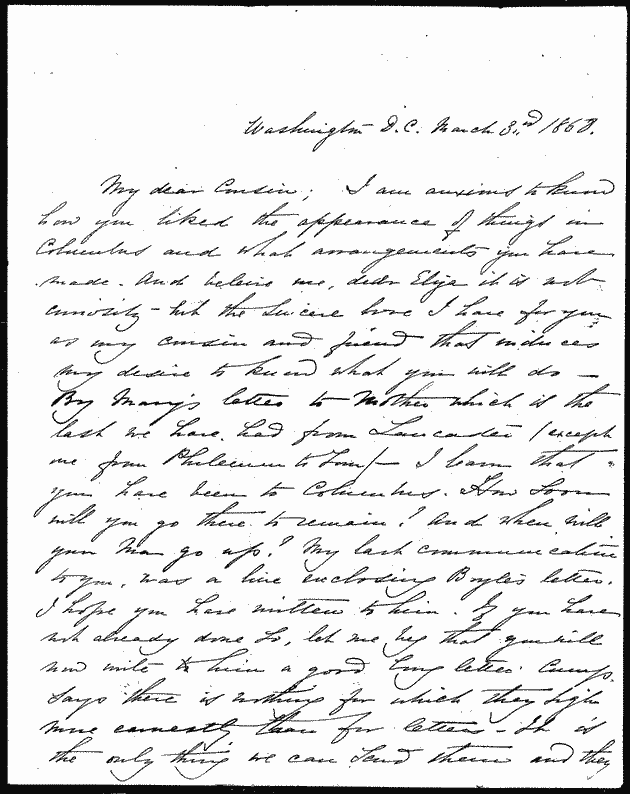 Washington D.C. March 3rd 1868.
My dear Cousin; I am anxious to know
how you liked the appearance of things in
Columbus and what arrangements you have
made. And believe me, dear Eliza it is not
curiosity - but the sincere love I have for you
as my cousin and friend that induces
my desire to know what you will do -
By Mary's letter to Mother which is the
last we have had from Lancaster (except
one from Philemon to Tom) - I learn that
you have been to Columbus. How soon
will you go there to remain? And when will
your Ma go up? My last communication
to you, was a line enclosing Boyle's letter.
I hope you have written to him. If you have
not already done so, let me beg that you will
now write to him a good long letter. Cump.
says there is nothing for which they sigh
more earnestly than for letters - It is
the only thing we can send them and they